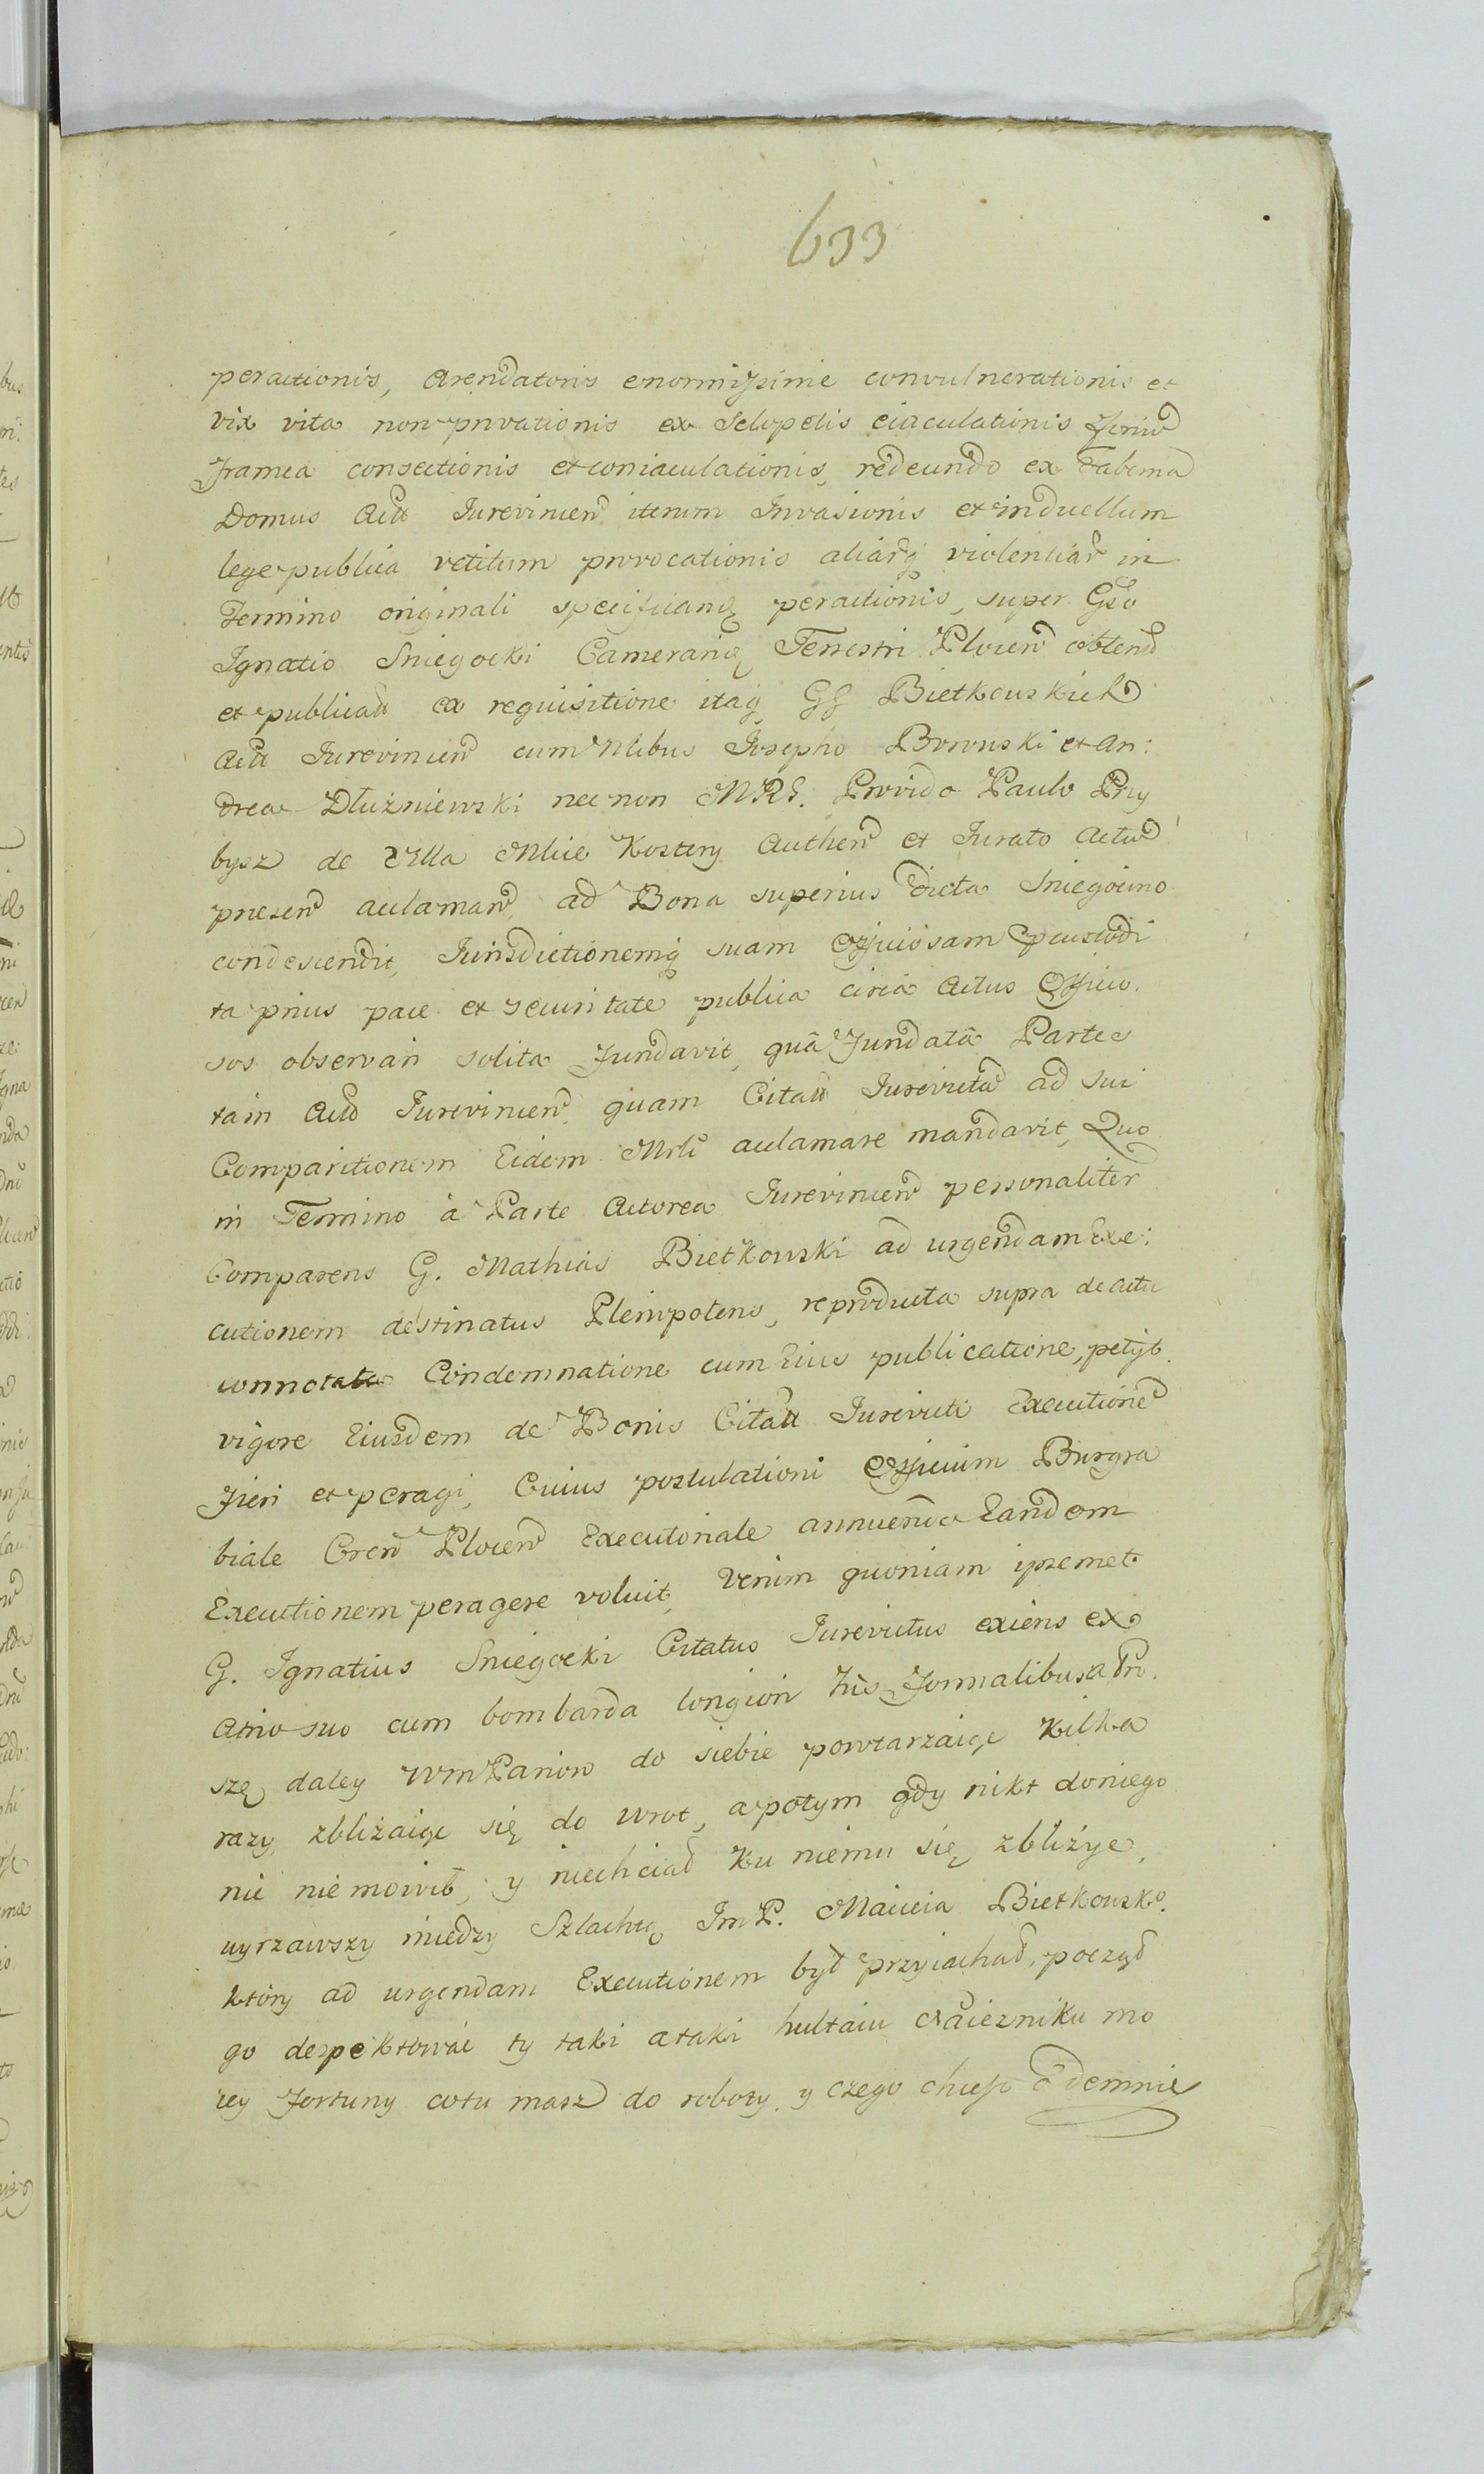 633
peractionis, Arendatoris enormissime convulnerationis et
vix vita non privationis ex Sclopetis eiaculationis
framea consectionis et coniaculationis, redeundo ex Taberna
Domus Iurevincen iterum Invasionis et in duellum
lege publica vetitum provocationis aliarq violentiar in
Termino originali specificand peractionis, super Gso
Ignatio Sniegocki Camerario Terrestri Plocen obtent
et publicat ex requisitione itaq GG Bietkowskich
Iurevincen cum Nlibus Josepho Borowski et An:
drea Dłużniewski nec non MRG. Provido Paulo Pry
bysz de Villa Kostery Authen et Iurato Actu
presen aclaman ad Bona superius dicta Sniegocino
condescendit, Iurisdictionemq suam Officiosam
ta prius pace et securitate publica circa Actus Officio.
sos observari solita fundavit, quâ fundatâ Partes
tam Iurevincen quam Citat Iurevicta ad sui
Comparitionem Eidem Mrli aclamare mandavit, Quo
in Termino à Parte Actorea Iurevincen personaliter
Comparens G. Mathias Bietkowski ad urgendam Exe:
cutionem destinatus Plenipotens, reproducta supra de actu
connotata Condemnatione cum Eius publicatione, petijt
vigore Eiusdem de Bonis Citat Iurevicti Executione
fieri et peragi, Cuius postulationi Officium Burgra
biale Cren Plocen Executoriale annuendo Eandem
Executionem peragere voluit, Verum quoniam ipsemet
G. Ignatius Sniegocki Citatus Iurevictus exiens ex
Atrio suo cum bombarda longiori his formalibus a Pro.
szę daley WmPanow do siebie powtarzaiąc kilka
razy, zbliżaiąc się do wrot, a potym gdy nikt doniego
nic nie mowił, y niechciał ku niemu się zbliżyc,
uyrzawszy między Szlachtą Im P. Macieia Bietkowsko.
ktory ad urgendam Executionem był przyiachał, począł
go despektować ty taki ataki hultaiu mo
iey fortuny cotu masz do roboty, y czego chcesz odemnie